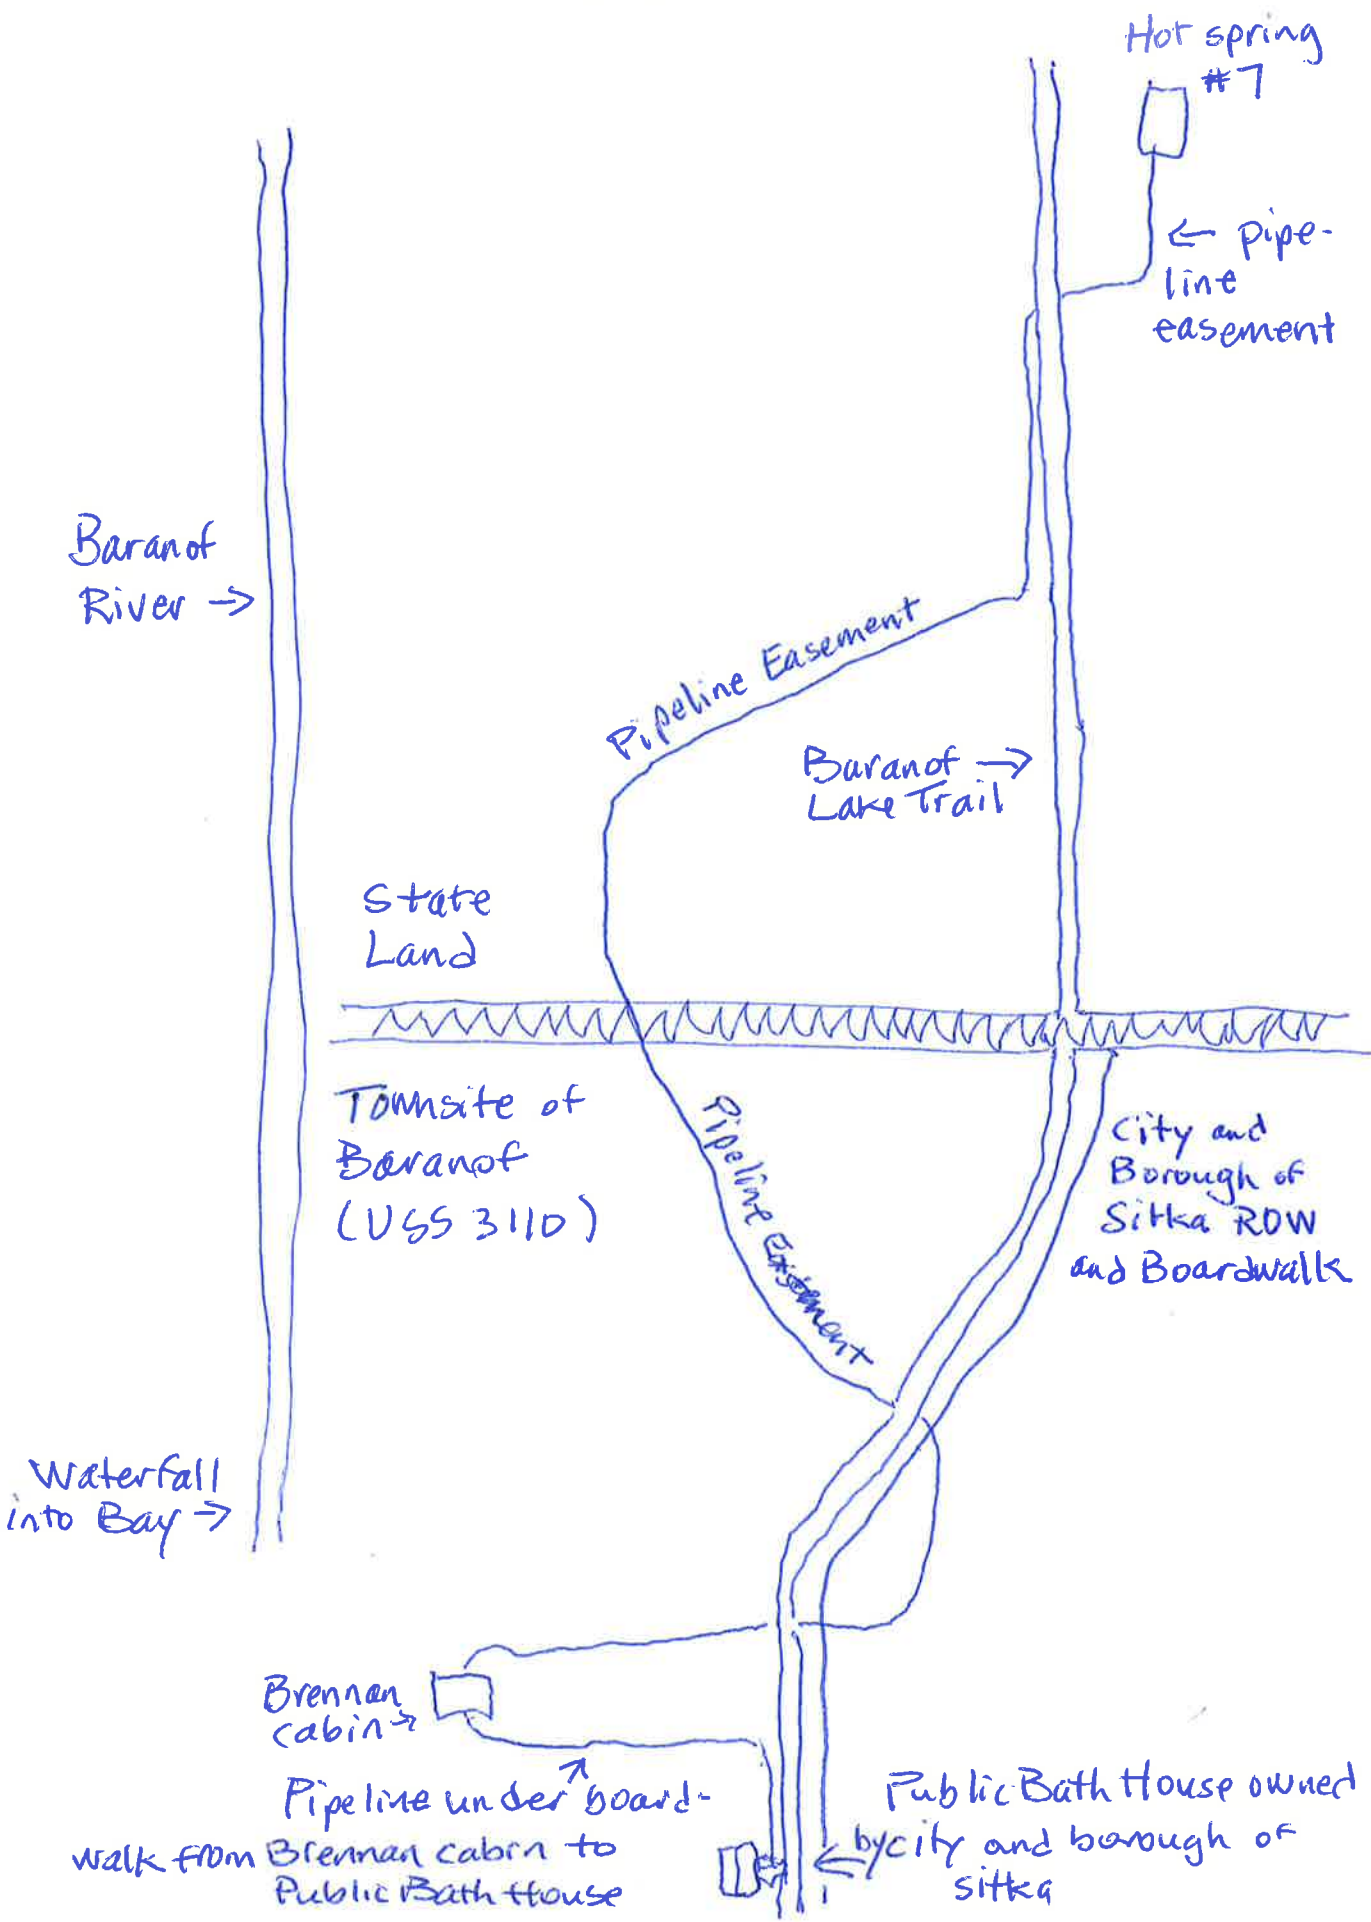 Hot spring
#7
← pipe-
line
easement
Baranof
River →
Pipeline Easement
Baranof →
Lake Trail
State
Land
Townsite of
Baranof
(USS 3110)
Pipeline Easement
City and
Borough of
Sitka ROW
and Boardwalk
Waterfall
into Bay →
Brennan
cabin →
Pipeline under board-
walk from Brennan cabin to
Public Bath House
Public Bath House owned
by city and borough of
sitka